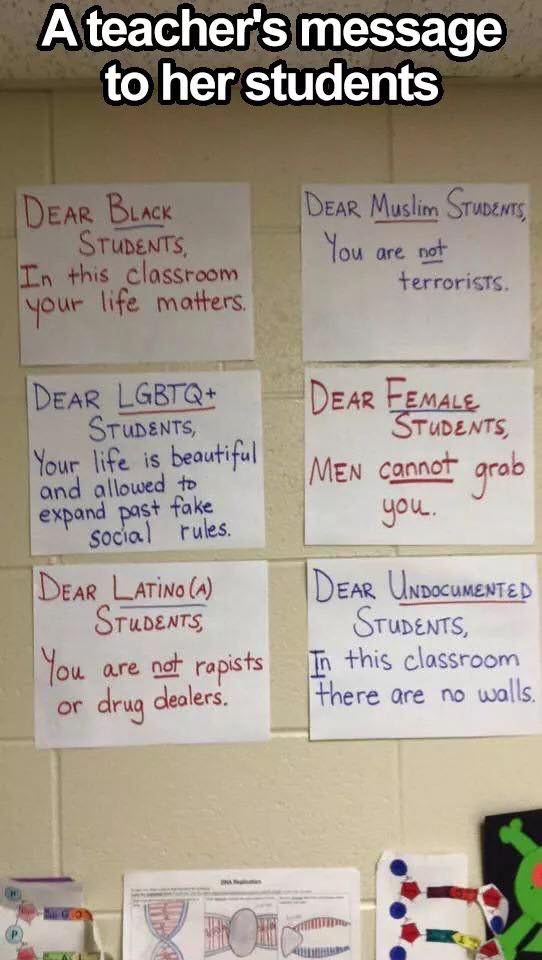 A teacher's message
to her students
DEAR BLACK
STUDENTS,
In this classroom
your life matters.
DEAR Muslim STUDENTS,
You are not
terrorists.
DEAR LGBTQ+
STUDENTS,
Your life is beautiful
and allowed to
expand past fake
social rules.
DEAR FEMALE
STUDENTS,
MEN cannot grab
you.
DEAR LATINO(A)
STUDENTS,
You are not rapists
or drug dealers.
DEAR UNDOCUMENTED
STUDENTS,
In this classroom
there are no walls.
DNA Replication
P
G